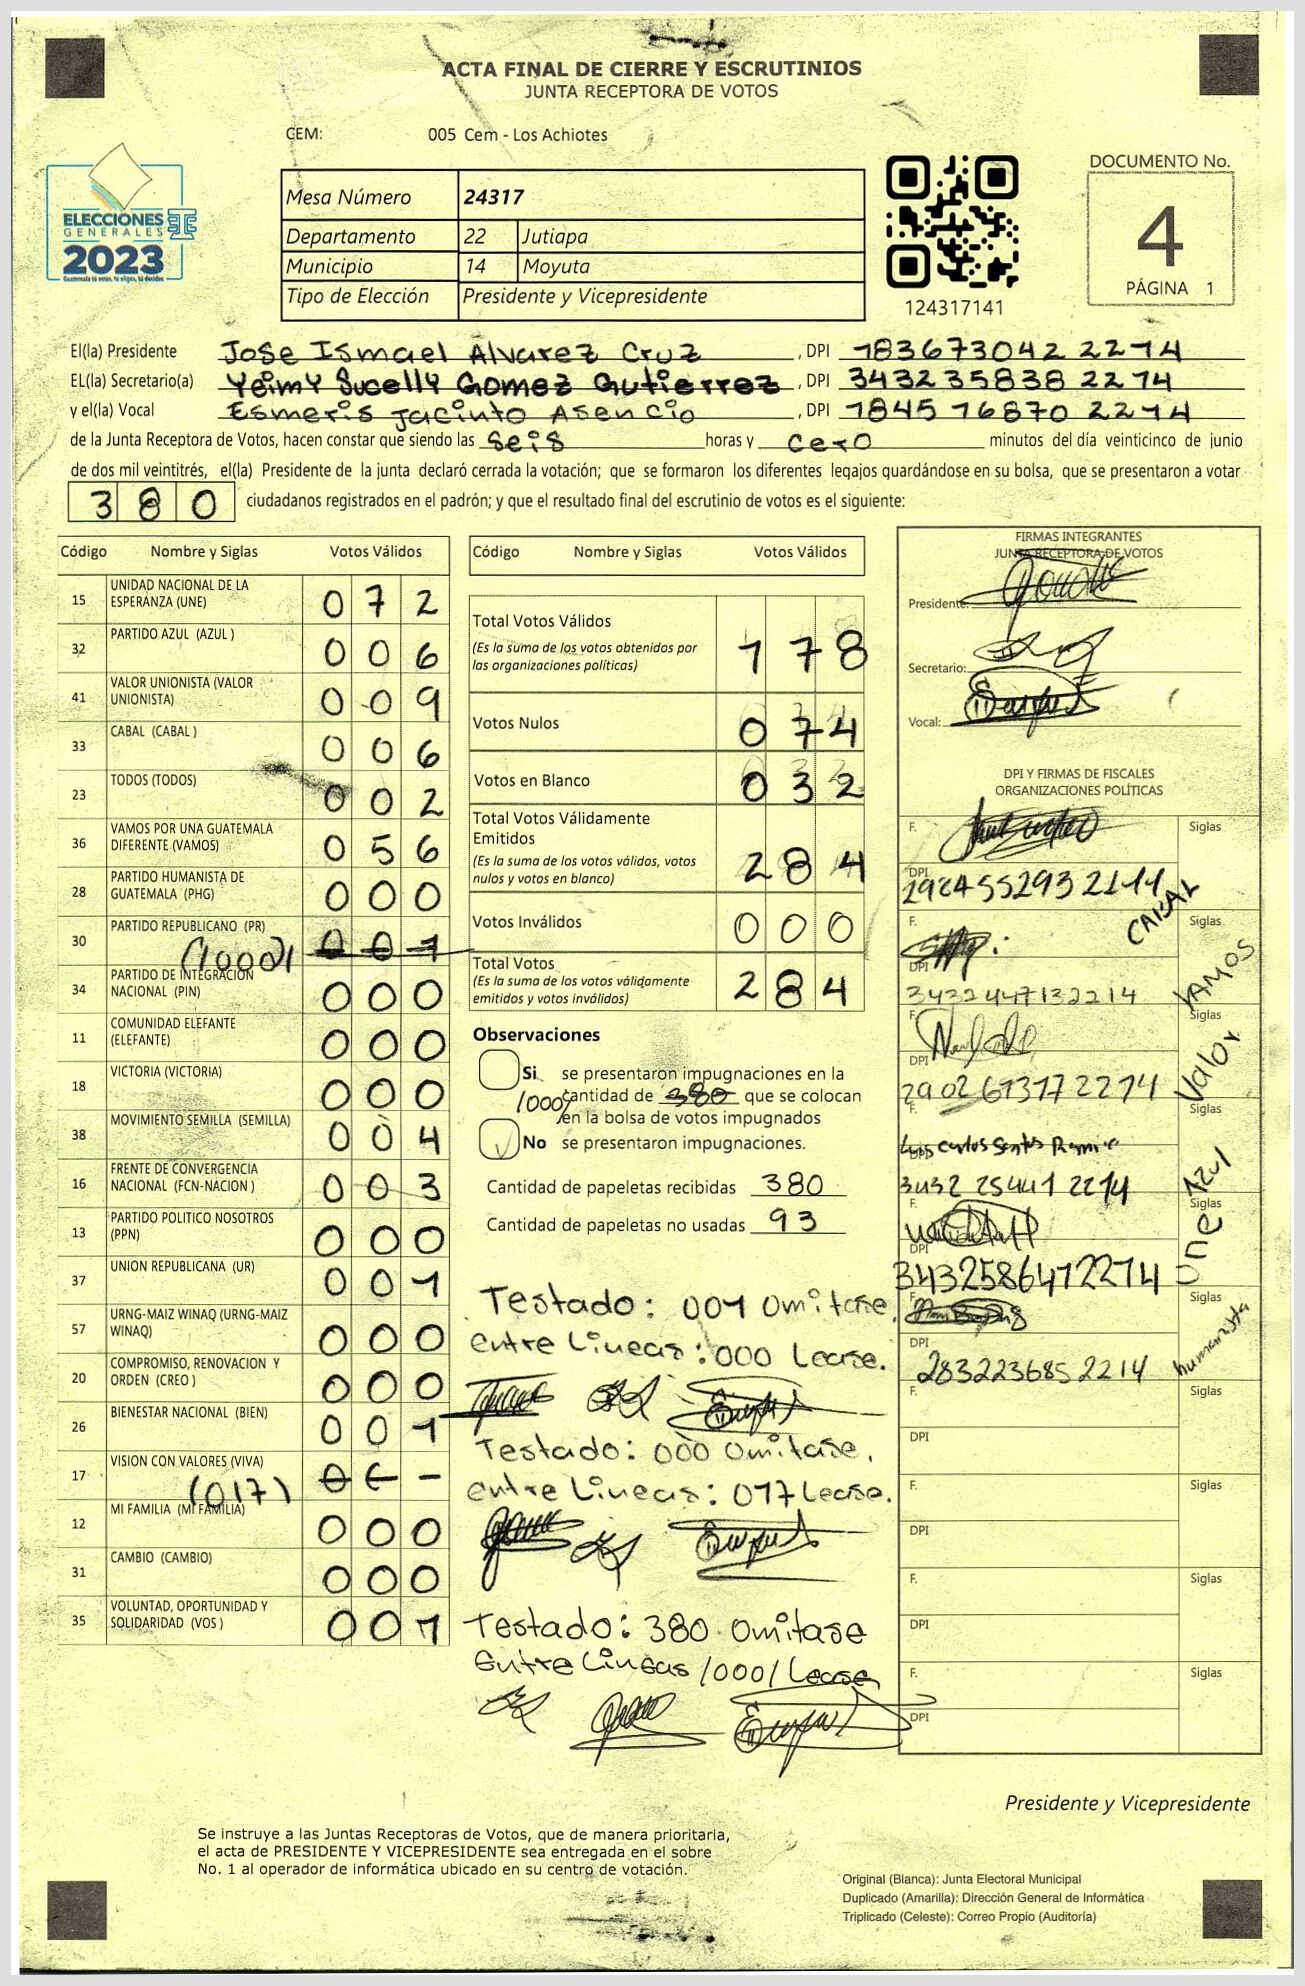 ACTA FINAL DE CIERRE Y ESCRUTINIOS
JUNTA RECEPTORA DE VOTOS
CEM: 005 Cem - Los Achiotes
ELECCIONES
GENERALES
2023
Guatemala tú votas, tú eliges, tú decides
Mesa Número 24317
Departamento 22 Jutiapa
Municipio 14 Moyuta
Tipo de Elección Presidente y Vicepresidente
124317141
DOCUMENTO No.
4
PÁGINA 1
El(la) Presidente Jose Ismael Alvarez Cruz , DPI 1836730422214
EL(la) Secretario(a) Yeimy Sucelly Gomez Gutierrez , DPI 3432358382214
y el(la) Vocal Esmeris Jacinto Asencio , DPI 1845768702214
de la Junta Receptora de Votos, hacen constar que siendo las seis horas y cero minutos del día veinticinco de junio
de dos mil veintitrés, el(la) Presidente de la junta declaró cerrada la votación; que se formaron los diferentes legajos guardándose en su bolsa, que se presentaron a votar
380 ciudadanos registrados en el padrón; y que el resultado final del escrutinio de votos es el siguiente:
Código Nombre y Siglas Votos Válidos
15 UNIDAD NACIONAL DE LA ESPERANZA (UNE) 072
32 PARTIDO AZUL (AZUL ) 006
41 VALOR UNIONISTA (VALOR UNIONISTA) 009
33 CABAL (CABAL ) 006
23 TODOS (TODOS) 002
36 VAMOS POR UNA GUATEMALA DIFERENTE (VAMOS) 056
28 PARTIDO HUMANISTA DE GUATEMALA (PHG) 000
30 PARTIDO REPUBLICANO (PR) (000) 001
34 PARTIDO DE INTEGRACIÓN NACIONAL (PIN) 000
11 COMUNIDAD ELEFANTE (ELEFANTE) 000
18 VICTORIA (VICTORIA) 000
38 MOVIMIENTO SEMILLA (SEMILLA) 004
16 FRENTE DE CONVERGENCIA NACIONAL (FCN-NACION ) 003
13 PARTIDO POLITICO NOSOTROS (PPN) 000
37 UNION REPUBLICANA (UR) 001
57 URNG-MAIZ WINAQ (URNG-MAIZ WINAQ) 000
20 COMPROMISO, RENOVACION Y ORDEN (CREO ) 000
26 BIENESTAR NACIONAL (BIEN) 001
17 VISION CON VALORES (VIVA) (017)
12 MI FAMILIA (MI FAMILIA) 000
31 CAMBIO (CAMBIO) 000
35 VOLUNTAD, OPORTUNIDAD Y SOLIDARIDAD (VOS ) 001
Código Nombre y Siglas Votos Válidos
Total Votos Válidos 178
(Es la suma de los votos obtenidos por
las organizaciones políticas)
Votos Nulos 074
Votos en Blanco 032
Total Votos Válidamente
Emitidos 284
(Es la suma de los votos válidos, votos
nulos y votos en blanco)
Votos Inválidos 000
Total Votos 284
(Es la suma de los votos válidamente
emitidos y votos inválidos)
Observaciones
Si se presentaron impugnaciones en la
/000/ cantidad de 380 que se colocan
en la bolsa de votos impugnados
No se presentaron impugnaciones.
Cantidad de papeletas recibidas 380
Cantidad de papeletas no usadas 93
Testado: 001 Omitase.
entre Lineas: 000 Lease.
Testado: 000 Omitase.
entre Lineas: 017 Lease.
Testado: 380 Omitase
Entre Lineas /000/ Lease
FIRMAS INTEGRANTES
JUNTA RECEPTORA DE VOTOS
Presidente:
Secretario:
Vocal:
DPI Y FIRMAS DE FISCALES
ORGANIZACIONES POLÍTICAS
F. Siglas
DPI 2924552932114 CABAL
F. Siglas
DPI 3432447132214 VAMOS
F. Siglas
DPI 2902673772214 Valor
F. Luis Carlos Santos Ramire Siglas
DPI 3432254412214 Azul
F. Siglas
DPI 3432586472214 une
F. Siglas
DPI 2832236852214 humanista
F. Siglas
DPI
F. Siglas
DPI
F. Siglas
DPI
F. Siglas
DPI
Presidente y Vicepresidente
Se instruye a las Juntas Receptoras de Votos, que de manera prioritaria,
el acta de PRESIDENTE Y VICEPRESIDENTE sea entregada en el sobre
No. 1 al operador de informática ubicado en su centro de votación.
Original (Blanca): Junta Electoral Municipal
Duplicado (Amarilla): Dirección General de Informática
Triplicado (Celeste): Correo Propio (Auditoría)